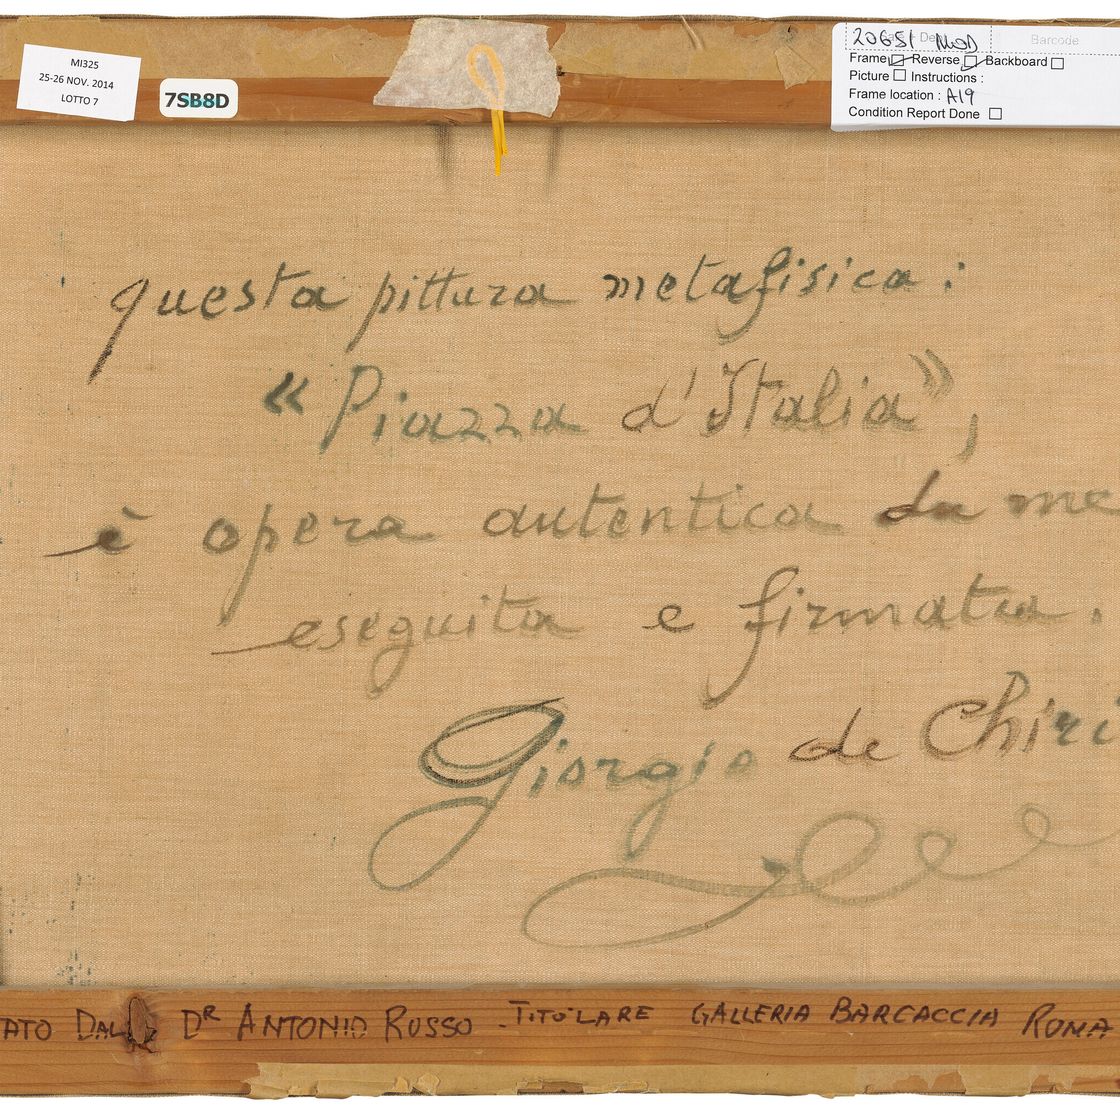 MI325
25-26 NOV. 2014
LOTTO 7
7SB8D
20651 MOD
Barcode
Frame Reverse Backboard
Picture Instructions :
Frame location : A19
Condition Report Done
questa pittura metafisica:
« Piazza d'Italia »,
è opera autentica da me
eseguita e firmata.
Giorgio de Chiri
ATO DAL DR ANTONIO RUSSO - TITOLARE GALLERIA BARCACCIA ROMA